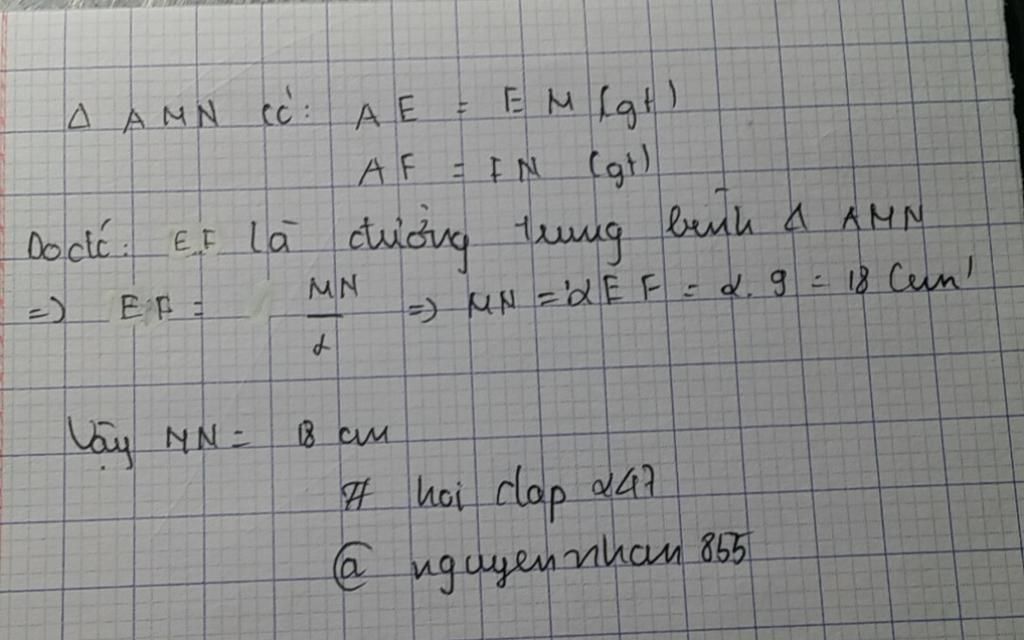 Δ AMN có: AE = EM (gt)
AF = FN (gt)
Do đó: EF là đường trung bình Δ AMN
=> EF = MN/2 => MN = 2EF = 2.9 = 18 (cm)
Vậy MN = 18 cm
# hoi dap 247
@ nguyen nhan 855